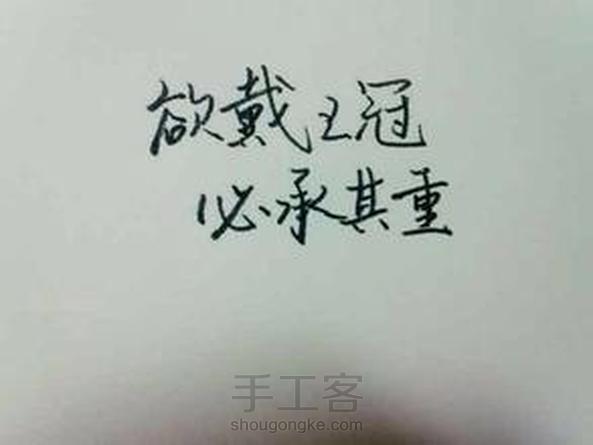 欲戴王冠
必承其重
手工客
shougongke.com